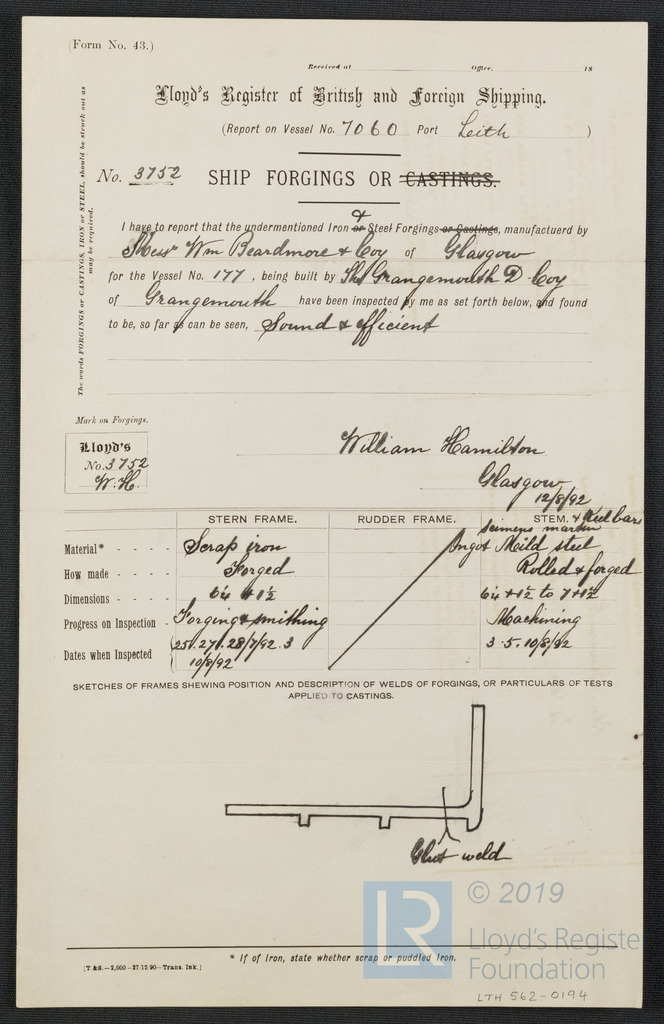 (Form No. 43.)
Received at Office, 18
Lloyd's Register of British and Foreign Shipping.
(Report on Vessel No. 7060 Port Leith )
No. 3752 SHIP FORGINGS OR CASTINGS.
The words FORGINGS or CASTINGS, IRON or STEEL, should be struck out as
may be required.
I have to report that the undermentioned Iron or & Steel Forgings or Castings, manufactuerd by
Messrs Wm Beardmore & Coy of Glasgow
for the Vessel No. 177, being built by The Grangemouth D Coy
of Grangemouth have been inspected by me as set forth below, and found
to be, so far as can be seen, Sound & efficient
Mark on Forgings.
Lloyd's
No. 3752
W.H.
William Hamilton
Glasgow
12/8/92
STERN FRAME. RUDDER FRAME. STEM. & Keel bars
Material* - - - - Scrap iron Seimens martin
Ingot Mild steel
How made - - - - Forged Rolled & forged
Dimensions - - - - 6¼ + 1½ 6¼ + 1½ to 7 + 1½
Progress on Inspection - Forging & smithing Machining
Dates when Inspected 25. 27. 28/7/92. 3 3. 5. 10/8/92
10/8/92
SKETCHES OF FRAMES SHEWING POSITION AND DESCRIPTION OF WELDS OF FORGINGS, OR PARTICULARS OF TESTS
APPLIED TO CASTINGS.
Glut weld
* If of Iron, state whether scrap or puddled iron.
[T & S.—2,000—27/12/90—Trans. Ink.]
LR
© 2019
Lloyd's Registe
Foundation
LTH 562-0194